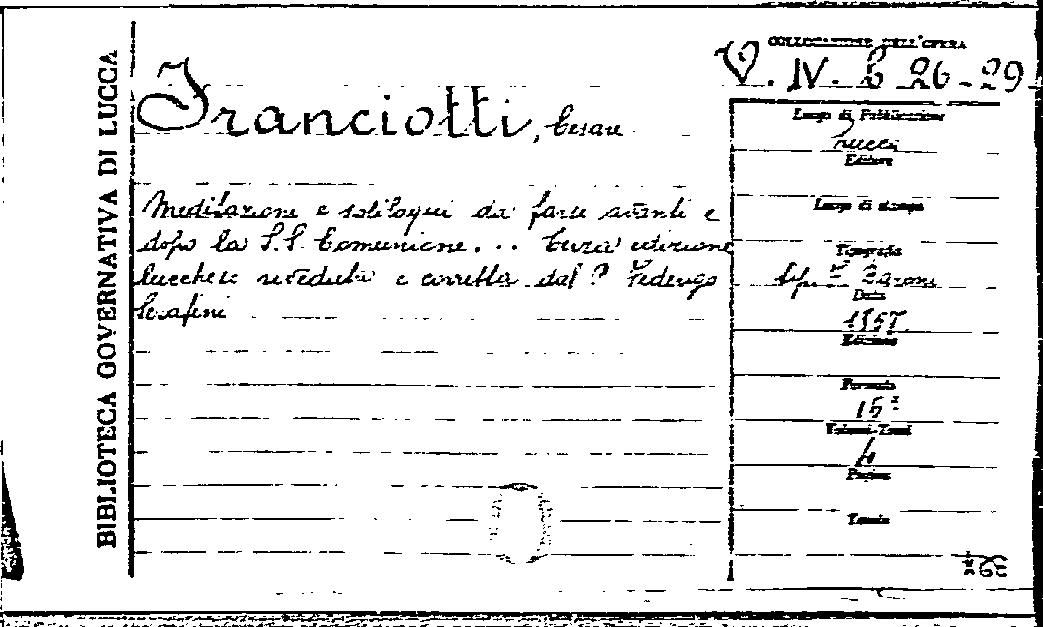 BIBLIOTECA GOVERNATIVA DI LUCCA
COLLOCAZIONE DELL'OPERA
V. IV. b 26-29
Franciotti, Cesare
Meditazione e soliloqui da farsi avanti e
dopo la S.S. Comunione... Terza edizione
lucchese riveduta e corretta dal P. Federigo
Serafini
Luogo di Pubblicazione
Lucca
Editore
Luogo di stampa
Tipografia
Baroni
Data
Edizione
Formato
16º
Volumi-Tomi
4
Pagine
Tomia